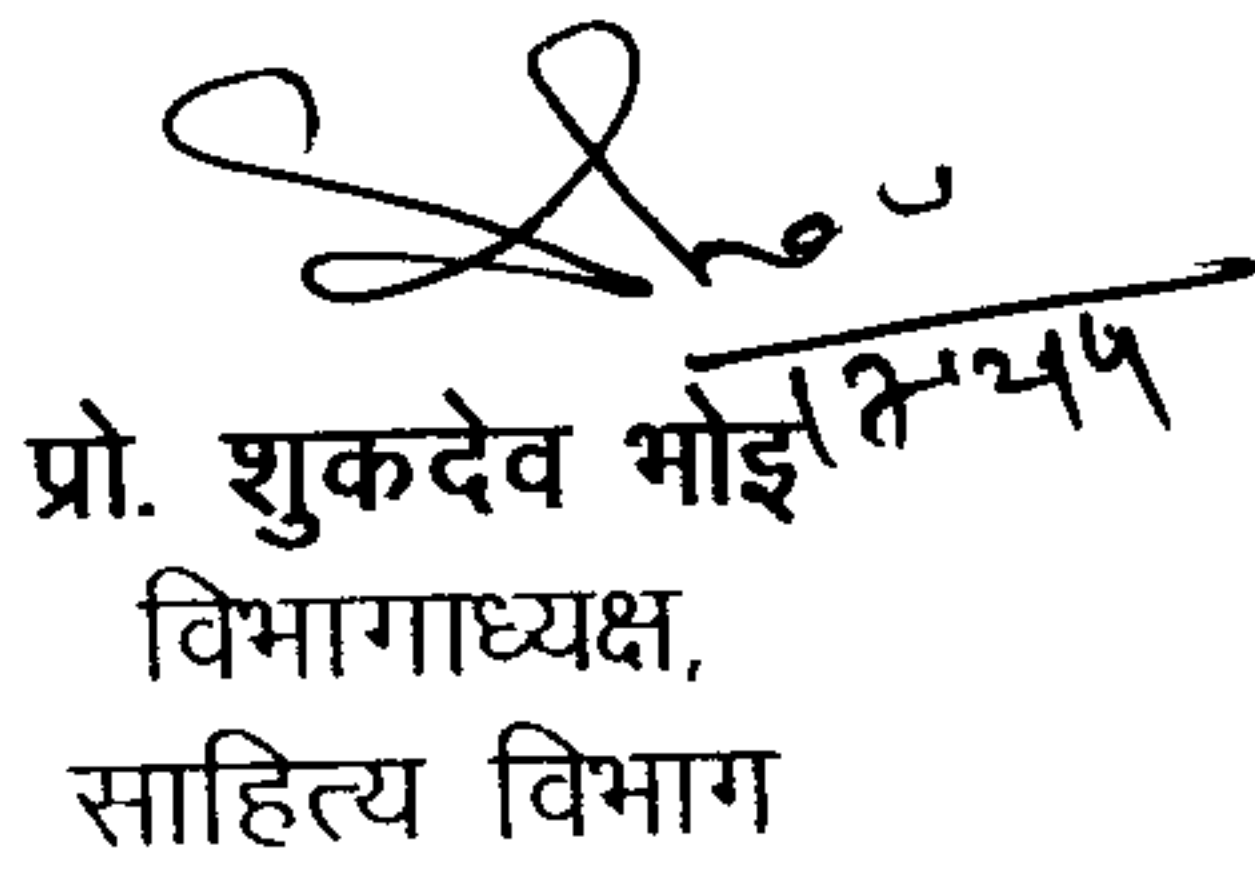 प्रो. शुकदेव भोइ
विभागाध्यक्ष,
साहित्य विभाग